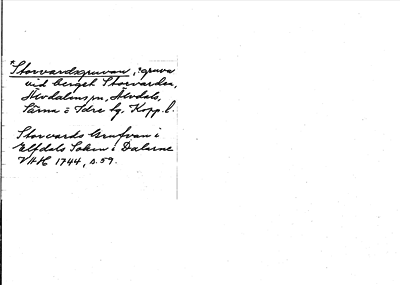 *Storvardsgruvan, *gruva
vid berget Storvarden,
Älvdalens sn, Älvdals,
Särna o Idre tg. Kopp. l.
Storvards Grufvan i
Elfdals Soken i Dalarne
VAH 1744, s. 59.